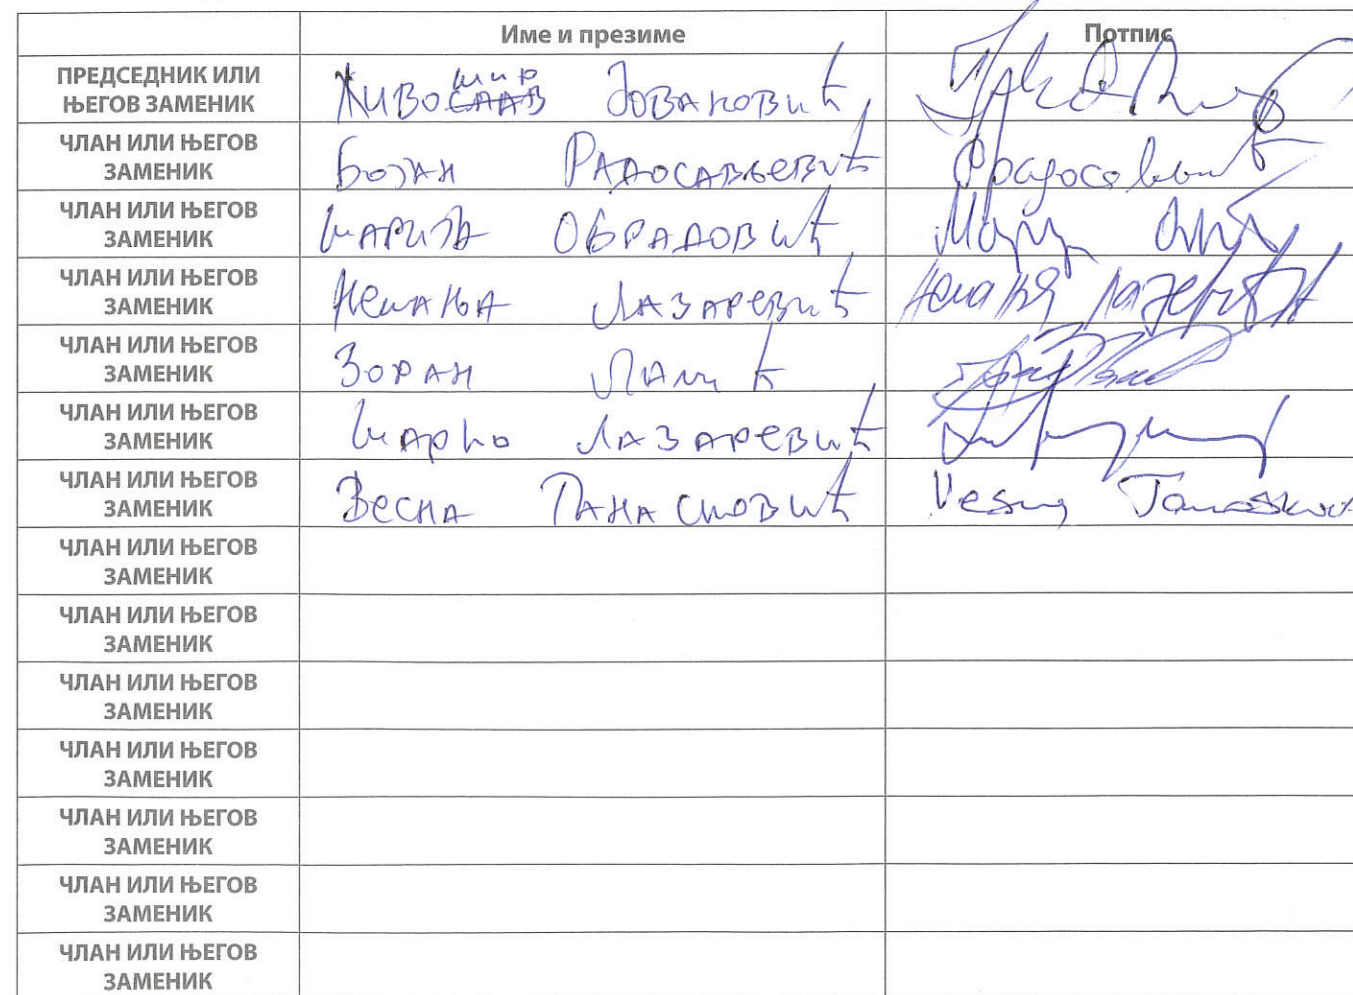 Име и презиме Потпис
ПРЕДСЕДНИК ИЛИ
ЊЕГОВ ЗАМЕНИК
мир
Живослав Јовановић
ЧЛАН ИЛИ ЊЕГОВ
ЗАМЕНИК
Бојан Радосављевић
ЧЛАН ИЛИ ЊЕГОВ
ЗАМЕНИК
Марија ОБРАДОВИЋ
ЧЛАН ИЛИ ЊЕГОВ
ЗАМЕНИК
Немања Лазаревић Немања
ЧЛАН ИЛИ ЊЕГОВ
ЗАМЕНИК
Зоран Лалић
ЧЛАН ИЛИ ЊЕГОВ
ЗАМЕНИК
Марко Лазаревић
ЧЛАН ИЛИ ЊЕГОВ
ЗАМЕНИК
Весна Vesna
ЧЛАН ИЛИ ЊЕГОВ
ЗАМЕНИК
ЧЛАН ИЛИ ЊЕГОВ
ЗАМЕНИК
ЧЛАН ИЛИ ЊЕГОВ
ЗАМЕНИК
ЧЛАН ИЛИ ЊЕГОВ
ЗАМЕНИК
ЧЛАН ИЛИ ЊЕГОВ
ЗАМЕНИК
ЧЛАН ИЛИ ЊЕГОВ
ЗАМЕНИК
ЧЛАН ИЛИ ЊЕГОВ
ЗАМЕНИК